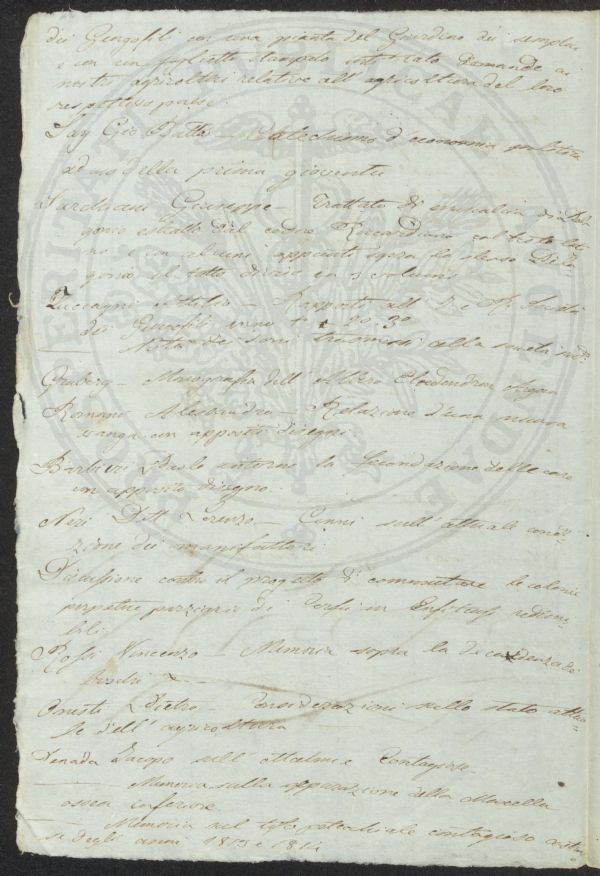 dei Georgofili con una pianta del Giardino dei semplici
e con un foglietto stampato intitolato Domande ai
nostri agricoltori relative all'agricoltura del loro
respettivo paese.
Say Gio Batta Catechismo d'economia politica
ad uso della prima gioventù
Sarchiani Giuseppe — Trattato di
estratto dal codice Riccardiano col testo
e con alcuni appunti sopra lo stesso
il tutto diviso in 3 volumi
Zuccagni Attilio — Rapporto all' I e R
dei Georgofili anno
— Nota dei semi trasmessi alla società
Graberg — Monografia dell'Albero
Romani Alessandro — Relazione d'una nuova
vanga con apposito disegni
Barbieri Paolo intorno la fecondazione delle
con apposito disegno.
Neri Dott Lorenzo — Cenni sull'attuale condi-
zione dei manifattori.
Discussione contro il progetto di commutare le colonie
perpetue parziarie di Corfu in Enfiteusi redimi-
bili.
Rossi Vincenzo — Memoria sopra la decadenza dei
boschi
Onesti Pietro — Considerazioni sullo stato attua-
le dell'agricoltura
Penada Jacopo sull'ottalmie Contagiose.
— Memoria sulla separazione della Mascella
ossea inferiore.
— Memoria sul tifo petecchiale contagioso
se degli anni 1813 e 1814